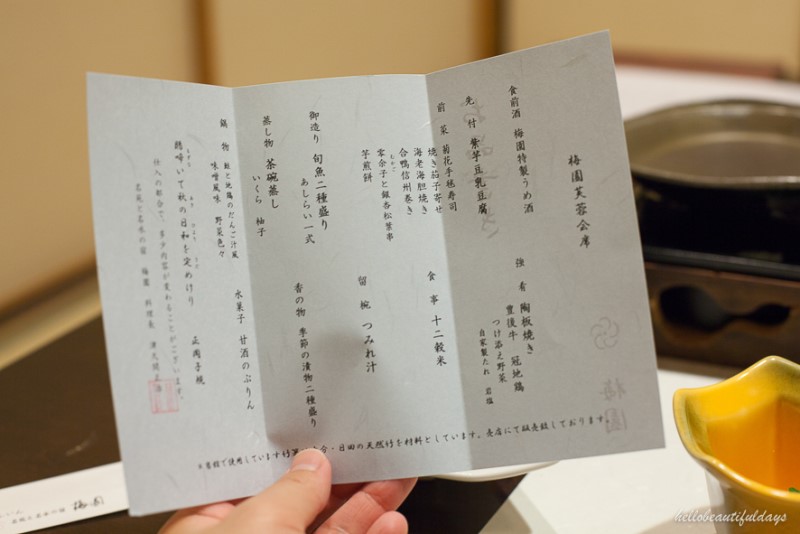 梅園芙蓉会席
食前酒 梅園特製うめ酒
先付 紫芋豆乳豆腐
前菜 菊花手毬寿司
焼き茄子寄せ
海老海胆焼き
合鴨信州巻き
零余子と銀杏松葉串
むかご
芋煎餅
御造り 旬魚二種盛り
あしらい一式
蒸し物 茶碗蒸し
いくら 柚子
鍋物 鮭と地鶏のだんご汁風
味噌風味 野菜色々
強肴 陶板焼き
豊後牛 冠地鶏
つけ添え野菜
自家製たれ 岩塩
食事 十二穀米
留椀 つみれ汁
香の物 季節の漬物二種盛り
水菓子 甘酒のぷりん
鵙啼いて秋の日和を定めけり 正岡子規
仕入の都合で、多少内容が変わることがございます。
名庭と名水の宿 梅園 料理長
※当館で使用しています竹箸
・日田の天然竹を材料としています。売店にて販売致しております。
梅園
梅園
hellobeautifuldays